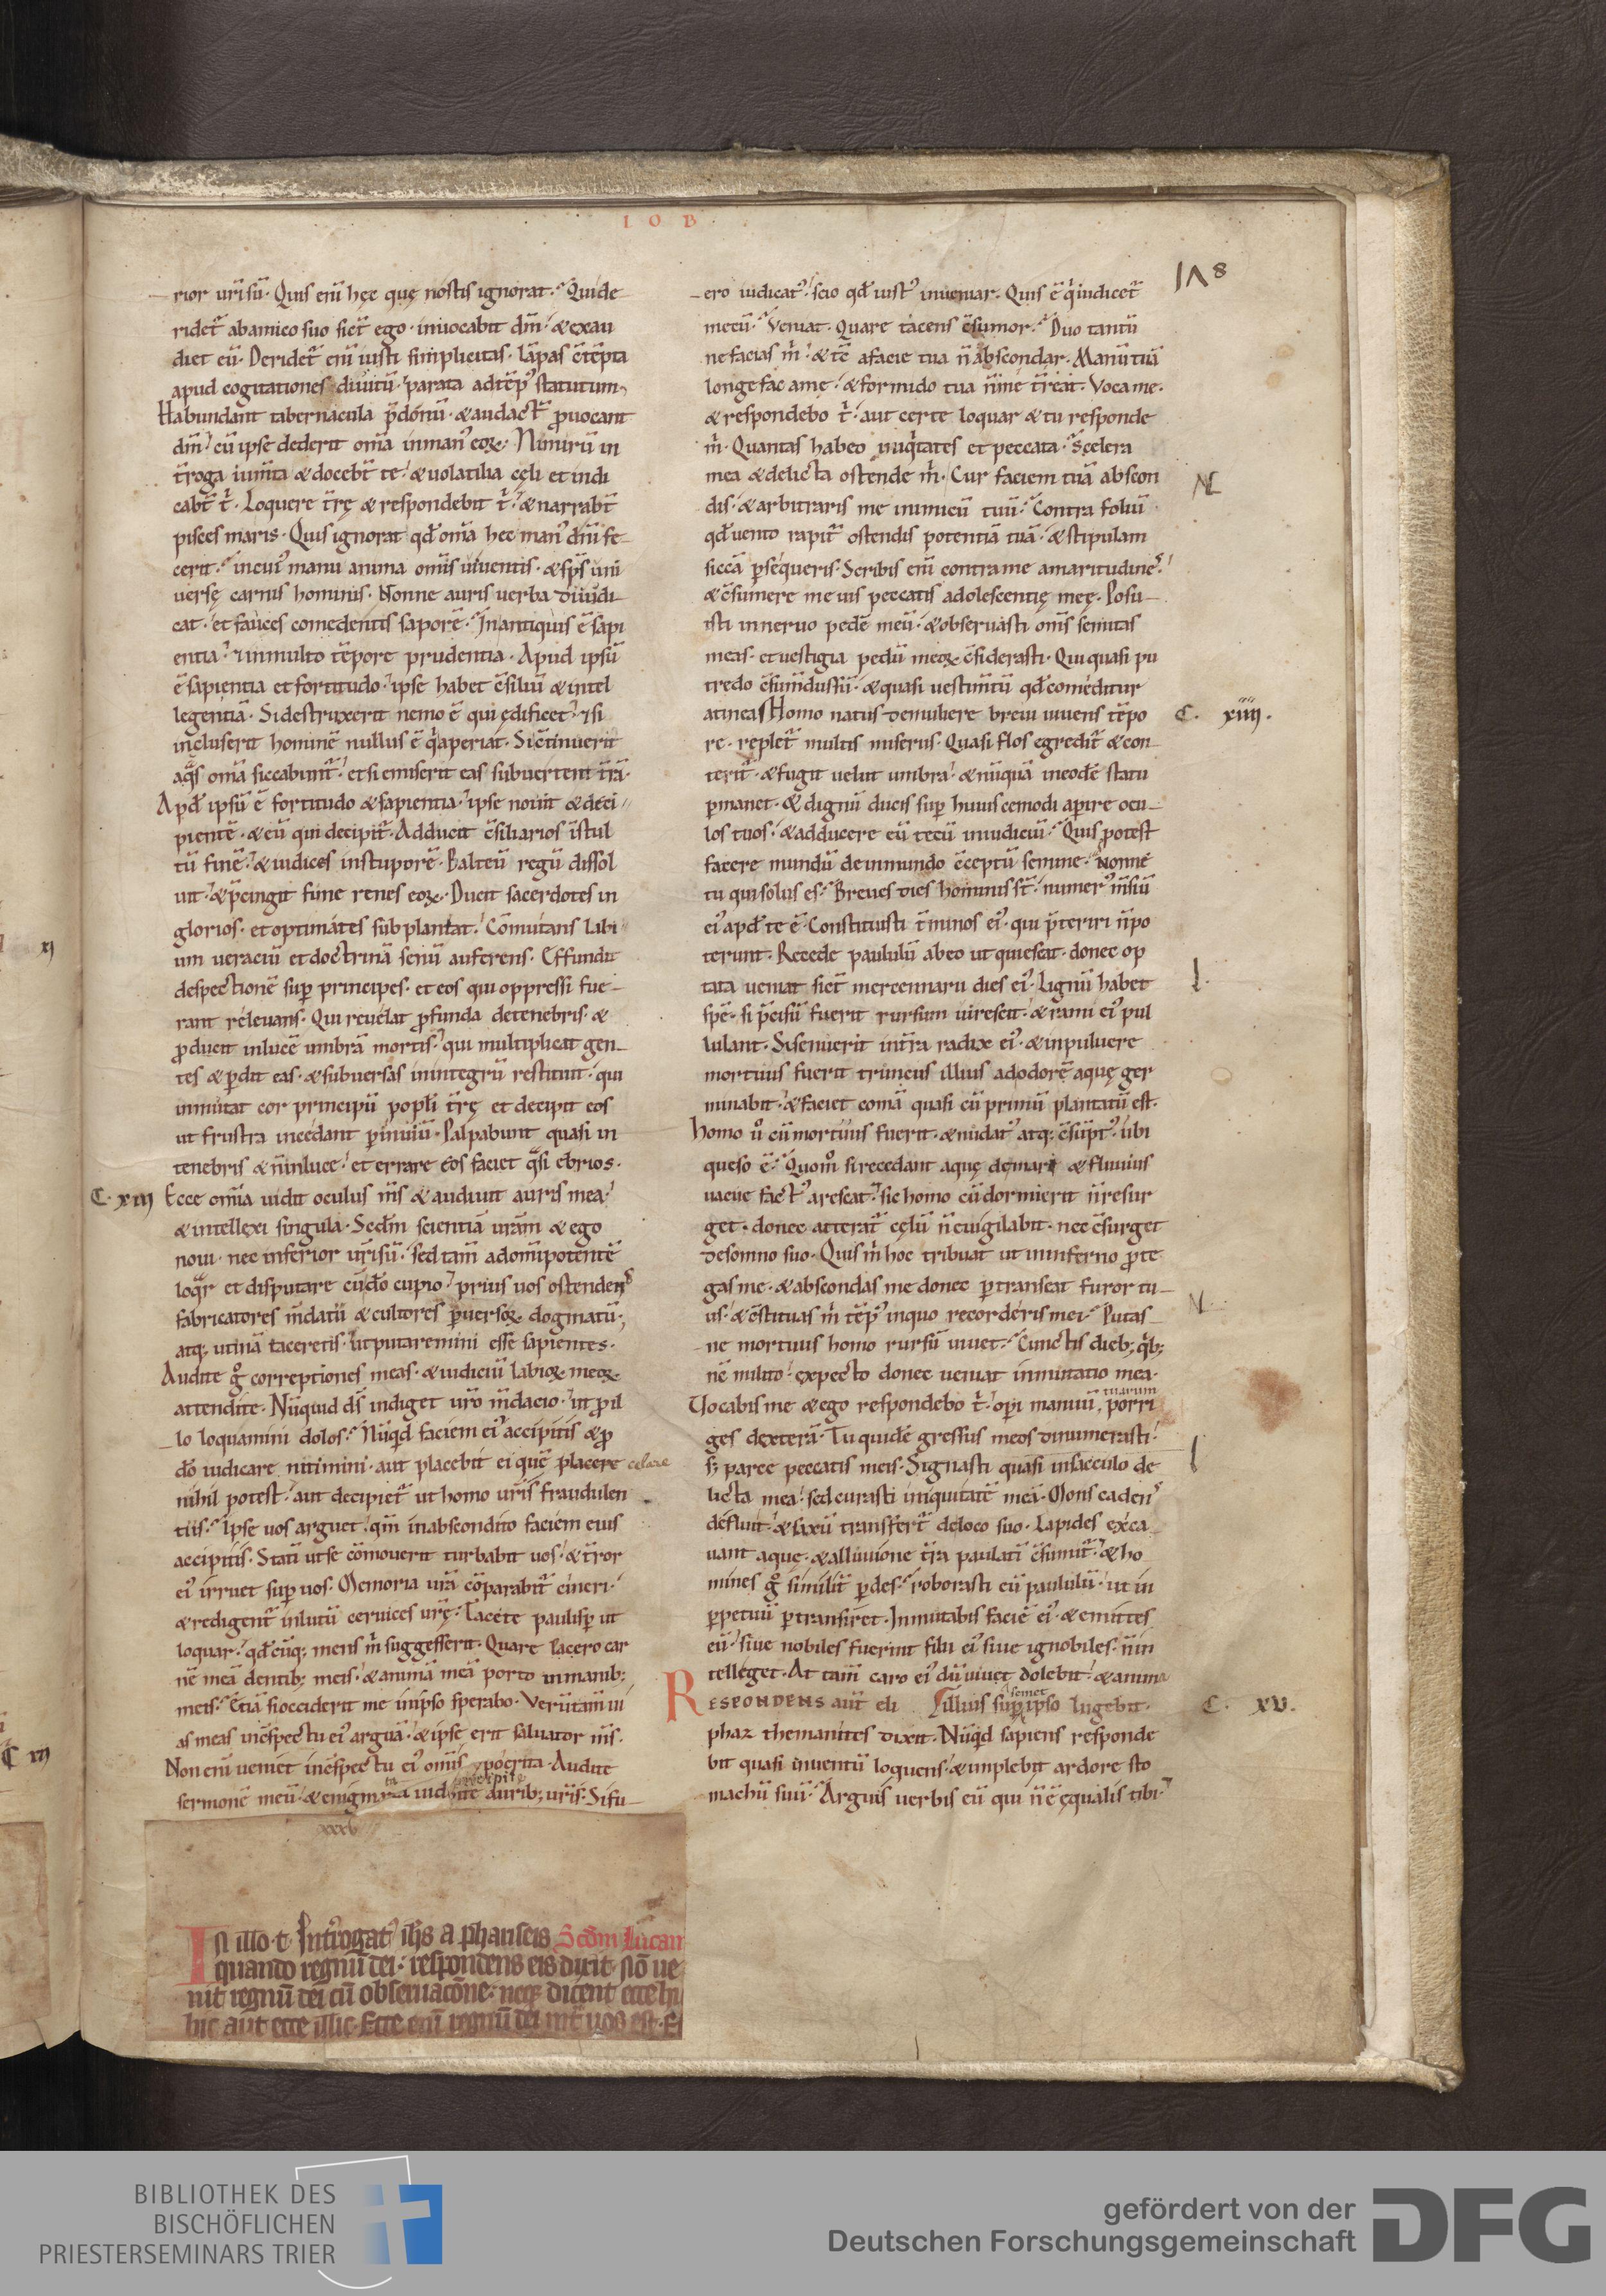 I O B
118
rior ur̄isū. Quis eni̅ hęc quę nostis ignorat. Quide
ridet᷑ abamico suo sic̄ ego. inuocabit dm̄. & exau
diet eū. Deridet᷑ eni̅ iusti simplicitas. lāpas c̄tēpta
apud cogitationes diuitū. parata adtēp᷒ statutum.
Habundant tabernacula p̄donū. & audact᷑ ꝓuocant
dm̄. cū ipse dederit om̄a inman᷒ eoꝝ. Nimirū in
t̄roga ium̄ta & docebt̄ te. & uolatilia cęli et indi
cabt̄ t̄. Loquere t̄rę & respondebit t̄. & narrabt̄
pisces maris. Quis ignorat qd̄ om̄a hec man᷒ dn̄i fe-
cerit. incui᷒ manu anima omīs uiuentis. & sp̄s uni
uersę carnis hominis. Nonne auris uerba diiudi-
cat. et fauces comedentis saporē. Inantiquis ē sapi
entia. & inmulto tēpore prudentia. Apud ipsū
ē sapientia et fortitudo. ipse habet c̄siliū & intel
legentiā. Si destruxerit nemo ē qui ędificet. & si
incluserit hominē nullus ē q̇aperiat. Si c̄tinuerit
aq̄s om̄a siccabunt᷑. et si emiserit eas subuertent t̄rā.
Apd̄ ipsū ē fortitudo & sapientia. ipse nouit & deci
pientē. & eū qui decipit᷑. Adducit c̄siliarios īstul
tū finē. & iudices instuporē. Balteū regū dissol
uit. & p̄cingit fune renes eoꝝ. Ducit sacerdotes in
glorios. et optimates subplantat. Cōmutans labi
um ueraciū et doctrinā senū auferens. Effundit
despectionē suꝑ principes. et eos qui oppressi fue-
rant releuans. Qui reuelat ꝓfunda detenebris. &
ꝓducit inlucē umbrā mortis. qui multiplicat gen-
tes & ꝑdit eas. & subuersas inintegrū restituit. qui
inmutat cor principū popl̄i t̄rę et decipit eos
ut frustra incedant ꝑinuiū. Palpabunt quasi in
tenebris & n̄inluce. et errare eos faciet q̄si ebrios.
C. xiii Ecce om̄ia uidit oculus m̄s & audiuit auris mea.
& intellexi singula. Scdm̄ scientiā uram̄ & ego
noui. nec inferior ur̄isū. sed tam̄ adom̄ipotentē
loq̄r et disputare cūdō cupio. prius uos ostendens
fabricatores m̄datii & cultores ꝑuersoꝝ dogmatū.
atq; utinā taceretis. ut putaremini esse sapientes.
Audite g̊ correptiones meas. & iudiciū labioꝝ meoꝝ
attendite. Nūquid ds̄ indiget uro m̄dacio. ut ꝓ il
lo loquamini dolos. Nūqd̄ faciem ei᷒ accipitis & ꝓ
dō iudicare nitimini. aut placebit ei quē placere celare
nihil potest. aut decipiet᷑ ut homo ur̄is fraudulen
tiis. Ipse uos arguet. qm̄ inabscondito faciem eius
accipitis. Statī utse cōmouerit turbabit uos. & t̄ror
ei᷒ irruet suꝑ uos. Memoria urā cōparabit᷑ cineri.
& redigent᷑ inlutū ceruices urę. Tacete paulisꝑ ut
loquar. qd̄cūq; mens m̄ suggesserit. Quare lacero car
nē meā dentib; meis. & animā meā porto inmanib;
meis. Etiā si occiderit me inipso sperabo. Verūtam̄ ui
as meas inc̄spectu ei᷒ arguā. & ipse erit saluator m̄s.
Non eni̅ ueniet inc̄spectu ei᷒ omīs ypocrita. Audite
sermonē meū. & enigmata aurib; ur̄is. Si fu-
ero iudicat᷒. scio qd̄ iust᷒ inueniar. Quis ē q̇iudicet᷑
mecū. Veniat. Quare tacens c̄sumor. Duo tantū
ne facias m̄. & tc̄ afacie tua n̄abscondar. Manūtuā
longe fac amę. & formido tua n̄me t̄reat. Voca me.
& respondebo t̄. aut certe loquar & tu responde
m̄. Quantas habeo iniq̇tates et peccata. Scelera
mea & delicta ostende m̄. Cur faciem tuā abscon
dis. & arbitraris me inimicū tuū. Contra foliū
qd̄ uento rapit᷑ ostendis potentiā tuā. & stipulam
siccā ꝑsequeris. Scribis eni̅ contra me amaritudines.
& c̄sumere me uis peccatis adolescentię meę. Posu-
isti inneruo pedē meū. & obseruasti omīs semitas
meas. et uestigia pedū meoꝝ c̄siderasti. Qui quasi pu
tredo c̄sum̄dusſū. & quasi uestim̄tū qd̄comeditur
atinea. Homo natus demuliere breui uiuens tēpo C. xiiii.
re. replet᷑ multis miseriis. Quasi flos egredit᷑ & con-
terit᷑. & fugit uelut umbra. & nūquā ineodē statu
ꝑmanet. & dignū ducis suꝑ huiuscemodi aꝑire ocu-
los tuos. & adducere eū tecū iniudiciū. Quis potest
facere mundū deinmundo c̄ceptū semine. Nonne
tu qui solus es. Breues dies hominis st̄. numer᷒ m̄siū
ei᷒ apd̄ te ē. Constituisti t̄minos ei᷒. qui p̄teriri n̄po
terunt. Recede paululū abeo ut quiescat. donec op
tata ueniat sic̄ mercennarii dies ei᷒. Lignū habet
spē. si p̄cisū fuerit rursum uirescit. & rami ei᷒ pul
lulant. Si senuerit int̄ra radix ei᷒. & inpuluere
mortuus fuerit truncus illius adodorē aquę ger
minabit. & faciet comā quasi cū primū plantatū est.
Homo u̅ cū mortuus fuerit. & nudat᷒ atq; c̄sūpt᷒. ubi
queso ē. Quom̊ si recedant aquę demari & fluuius
uacue fact᷒ arescat. sic homo cū dormierit n̄resur
get. donec atterat᷑ cęlū n̄euigilabit. nec c̄surget
desomno suo. Quis m̄ hoc tribuat ut ininferno ꝓte
gas me. & abscondas me donec ꝑtranseat furor tu-
us. & c̄stituas m̄ tēp᷒ inquo recorderis mei. Putas-
ne mortuus homo rursū uiuet. Cunctis dieb; q̇b;
nc̄ milito. expecto donec ueniat inmutatio mea.
Vocabis me & ego respondebo t̄. oꝑi manuū tuarum porri
ges dexterā. Tu quidē gressus meos dinumerasti.
s; parce peccatis meis. Signasti quasi insacculo de
licta mea. sed curasti iniquitatē meā. Mons cadens
defluit. & saxū transfert᷑ deloco suo. Lapides exca
uant aque. & alluuione t̄ra paulatī c̄sumit᷑. & ho
mines g̊ similit᷑ ꝑdes. roborasti eū paululū. ut in
ꝑpetuū ꝑtransiret. Inmutabis faciē ei᷒. & emittes
eū. siue nobiles fuerint filii ei᷒ siue ignobiles. n̄in
telleget. At tam̄ caro ei᷒ dū uiuet dolebit. & anima
RESPONDENS aut̄ eli illius suꝑ semet ipso lugebit. C. xv.
phaz themanites dixit. Nūqd̄ sapiens responde
bit quasi inuentū loquens. & implebit ardore sto
machū suū. Arguis uerbis eū qui n̄ ē ęqualis tibi.
In illo t. Int̄rogat᷒ ih̄s a phariseis Scdm Lucan
quando regnū dei. respondens eis dixit. Nō ue
nit regnū dei cū obseruacōne. neq; dicent ecce
hic aut ecce illic. Ecce eni̅ regnū dei int̄ uos est. E
BIBLIOTHEK DES
BISCHÖFLICHEN
PRIESTERSEMINARS TRIER
gefördert von der
Deutschen Forschungsgemeinschaft
DFG